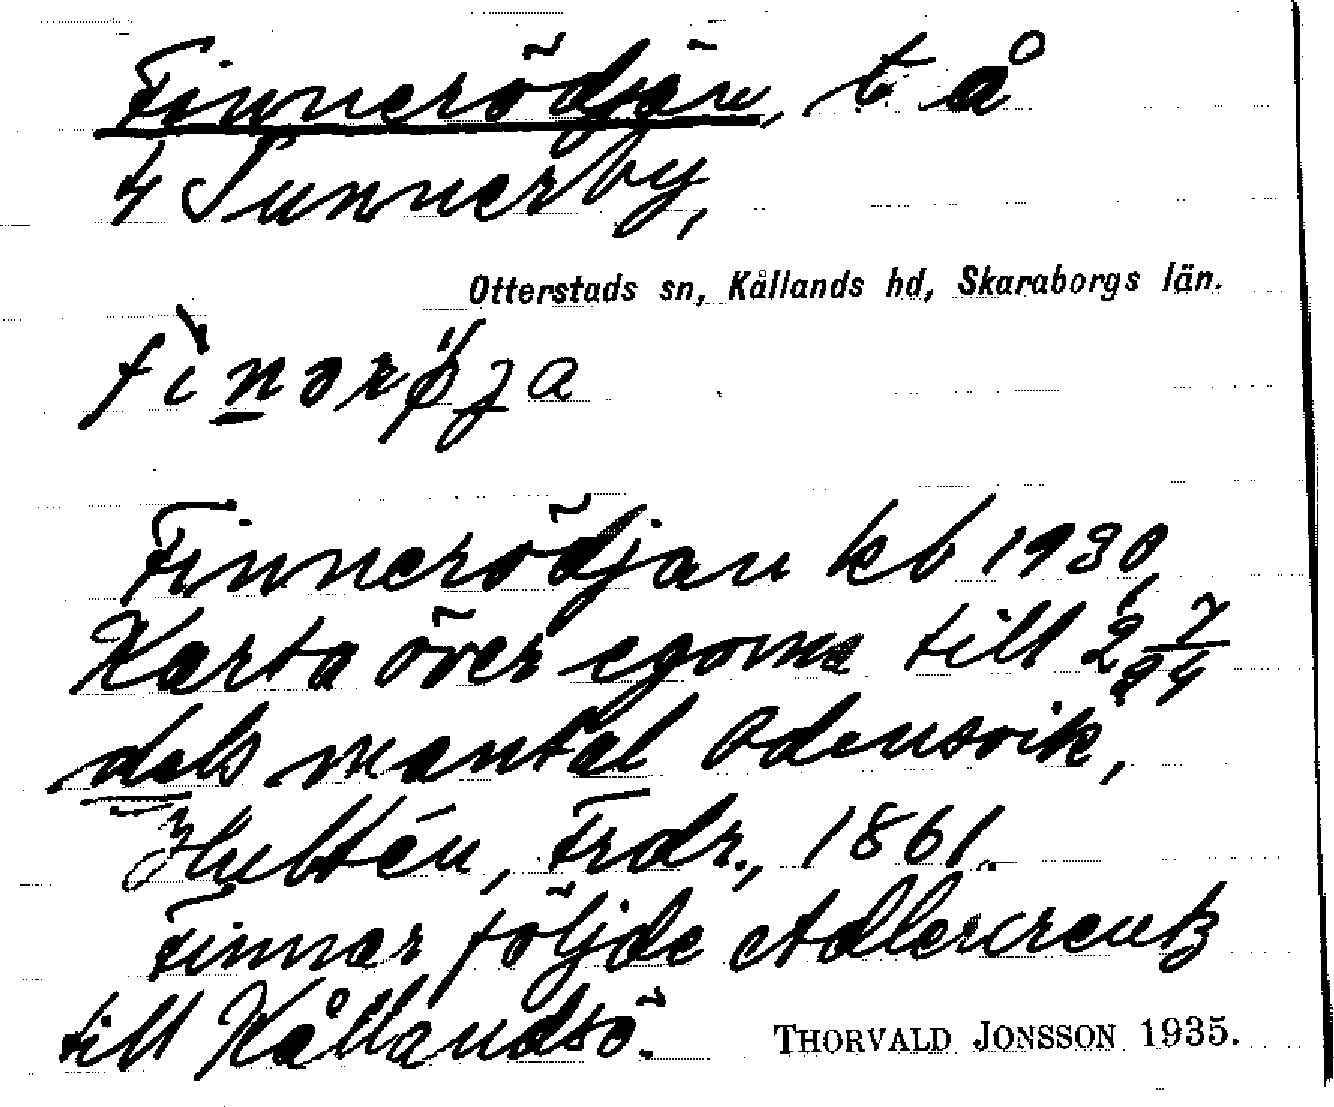 Finnerödjan, t å
4 Sunnerby,
Otterstads sn, Kållands hd, Skaraborgs län.
Finnerödjan kb 1930,
Karta över egorna till 2 7/24
dels mantal Odensvik,
Hultén, Frdr., 1861.
Finnar följde Adlercreutz
till Kållandsö.
THORVALD JONSSON 1935.